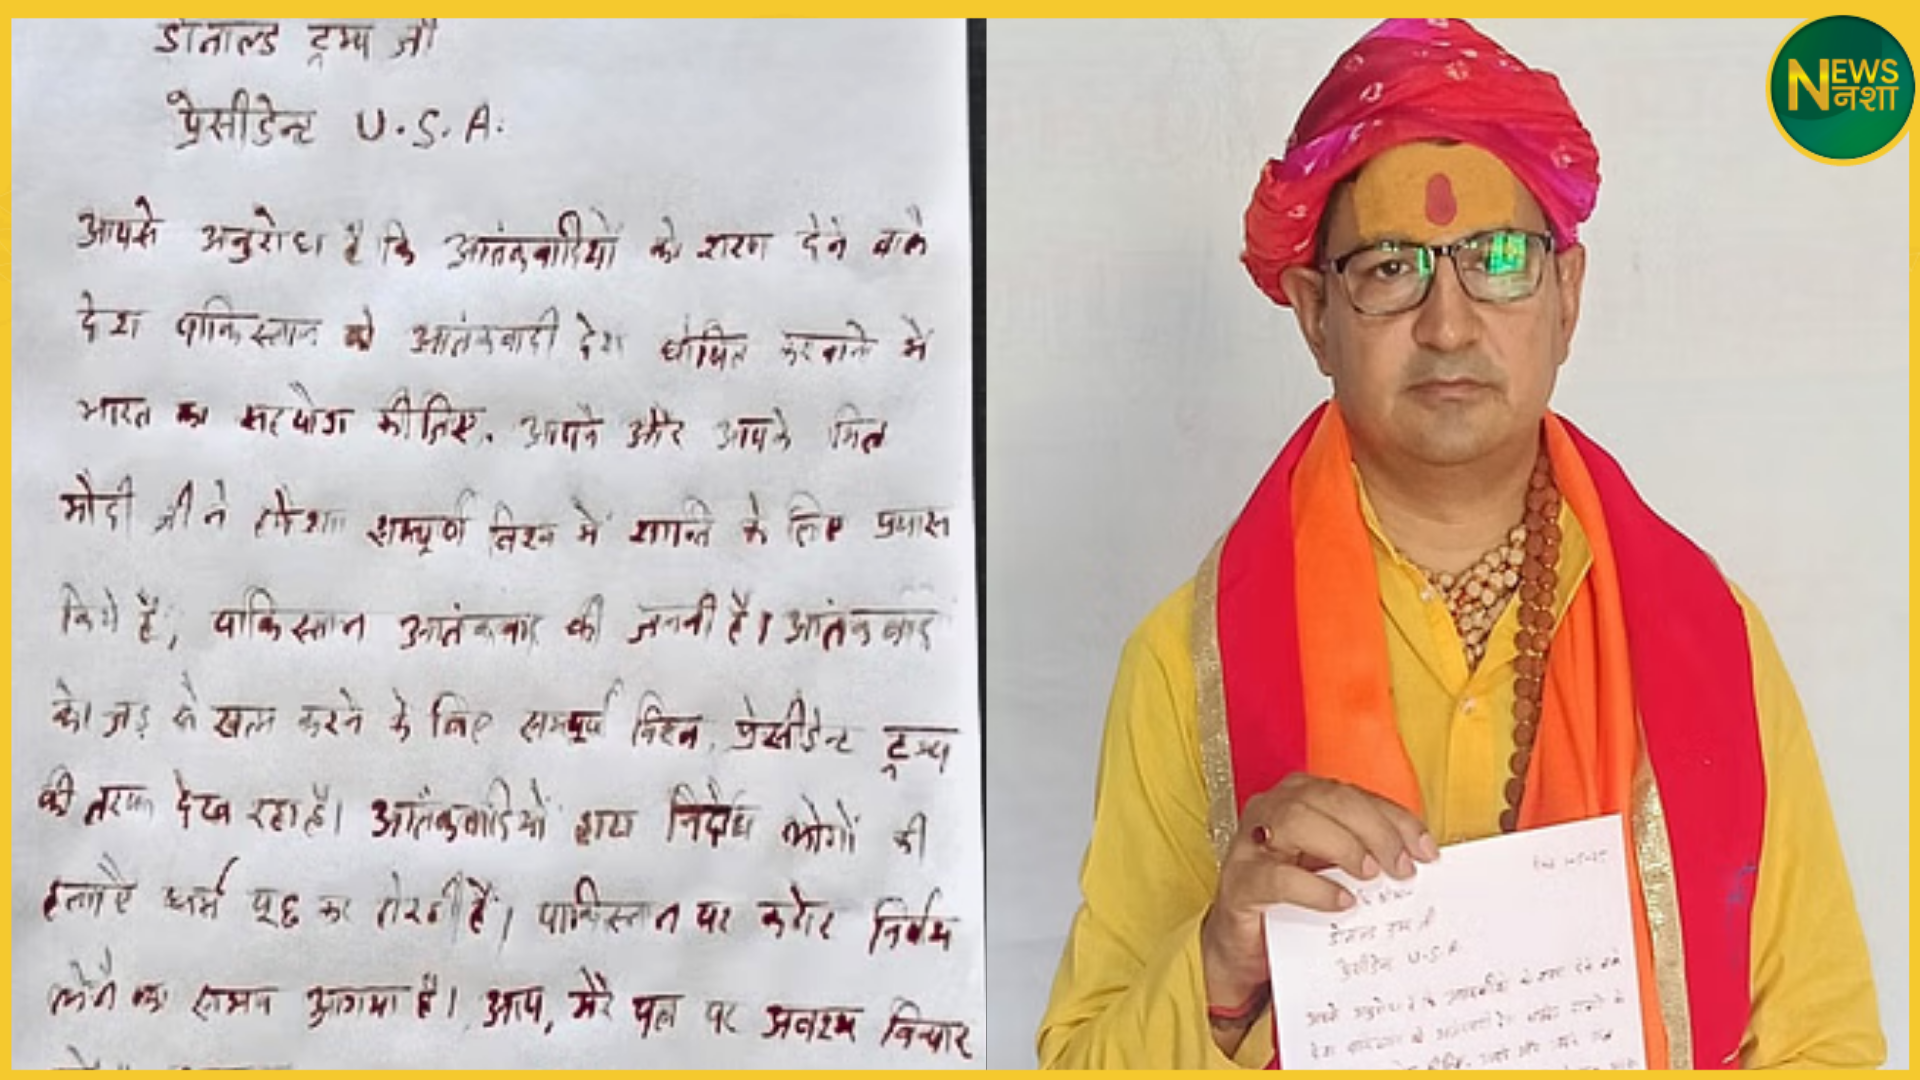 डोनाल्ड ट्रम्प जी
प्रेसीडेन्ट U.S.A.
आपसे अनुरोध है कि आतंकवादियों को शरण देने वाले
देश पाकिस्तान को आतंकवादी देश घोषित करवाने में
भारत का सहयोग कीजिए. आपने और आपके मित्र
मोदी जी ने हमेशा सम्पूर्ण विश्व में शान्ति के लिए प्रयास
किये हैं, पाकिस्तान आतंकवाद की जननी है। आतंकवाद
को जड़ से खत्म करने के लिए सम्पूर्ण विश्व, प्रेसीडेन्ट ट्रम्प
की तरफ देख रहा है। आतंकवादियों द्वारा निर्दोष लोगों की
हत्याऐं धर्म पूछ कर हो रही हैं। पाकिस्तान पर कठोर निर्णय
लेने का समय आ गया है। आप, मेरे पत्र पर अवश्य विचार
NEWS
नशा
डोनाल्ड ट्रम्प जी
प्रेसीडेन्ट U.S.A.
आपसे अनुरोध है कि आतंकवादियों को शरण देने वाले
देश पाकिस्तान को आतंकवादी देश घोषित करवाने में